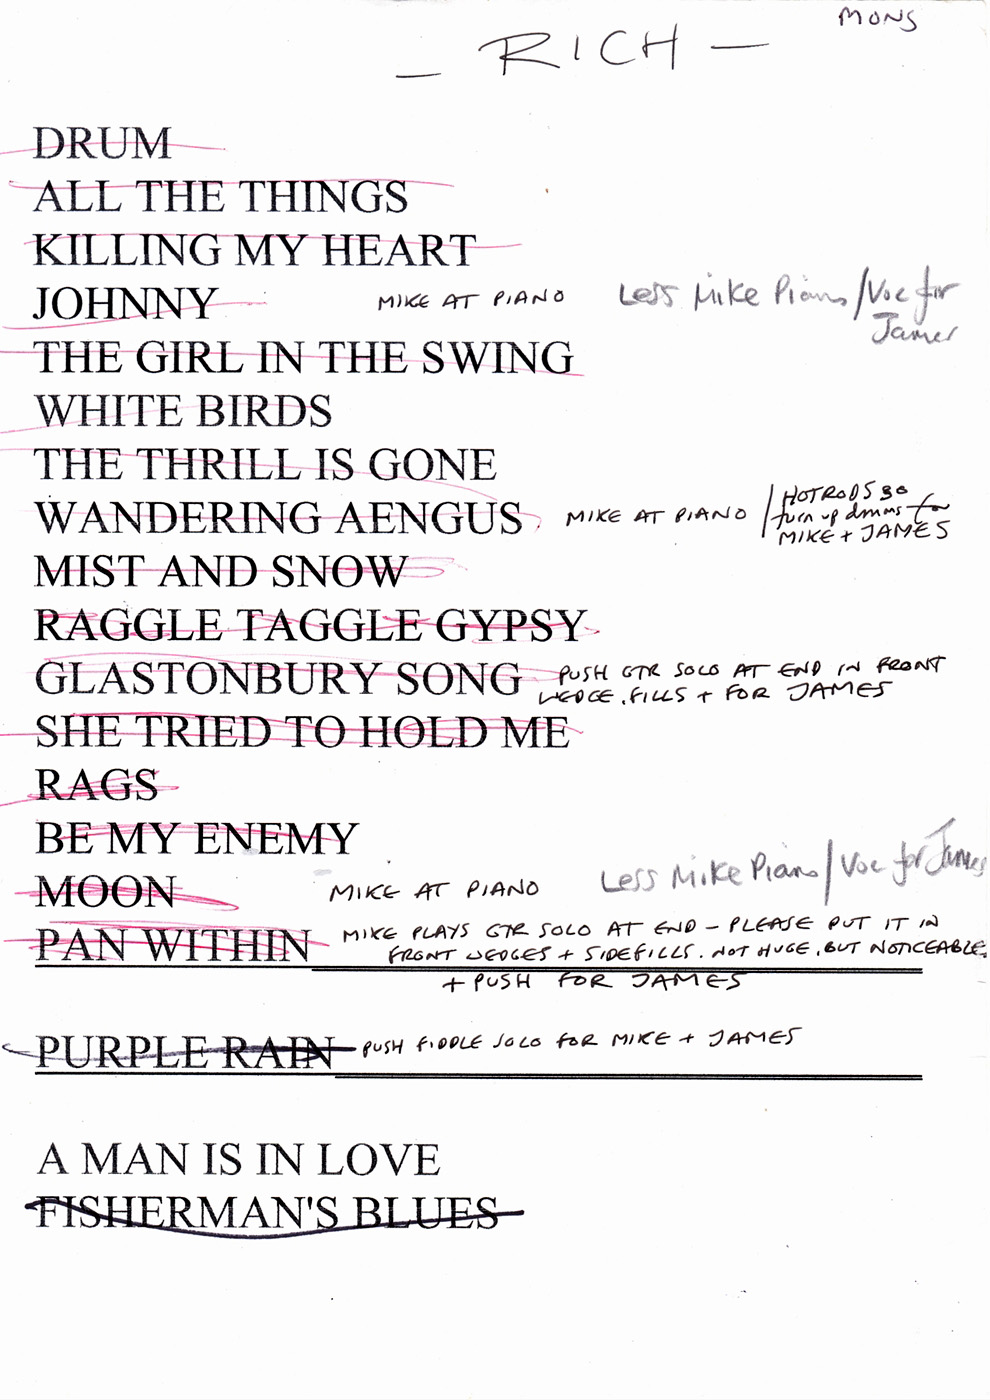 MONS
— RICH —
DRUM
ALL THE THINGS
KILLING MY HEART
JOHNNY MIKE AT PIANO Less Mike Piano / Voc for
James
THE GIRL IN THE SWING
WHITE BIRDS
THE THRILL IS GONE
WANDERING AENGUS MIKE AT PIANO / HOTRODS so
turn up drums for
MIKE + JAMES
MIST AND SNOW
RAGGLE TAGGLE GYPSY
GLASTONBURY SONG PUSH GTR SOLO AT END IN FRONT
WEDGE, FILLS + FOR JAMES
SHE TRIED TO HOLD ME
RAGS
BE MY ENEMY
MOON MIKE AT PIANO Less Mike Piano / Voc for James
PAN WITHIN MIKE PLAYS GTR SOLO AT END - PLEASE PUT IT IN
FRONT WEDGES + SIDEFILLS. NOT HUGE, BUT NOTICEABLE.
+ PUSH FOR JAMES
PURPLE RAIN PUSH FIDDLE SOLO FOR MIKE + JAMES
A MAN IS IN LOVE
FISHERMAN'S BLUES